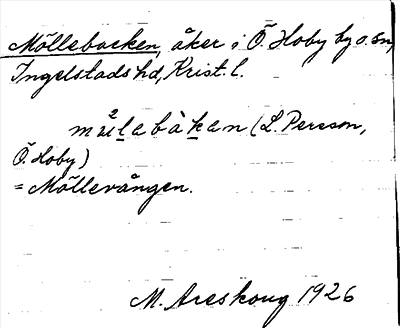 Möllebacken, åker i Ö. Hoby by o. sn,
Ingelstads hd, Krist. l.
mø̊labàkan (L. Persson,
Ö. Hoby)
= Möllevången.
M. Areskoug 1926